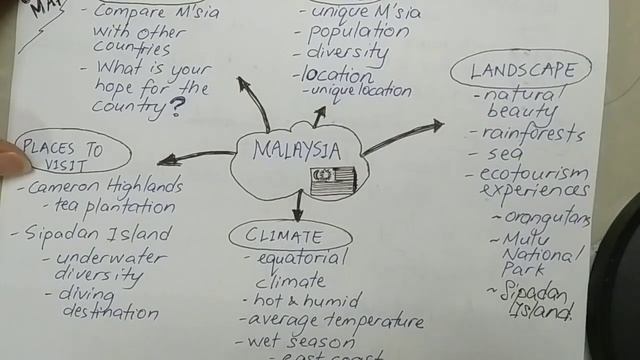 MAP
- Compare M'sia
with other
countries
- What is your
hope for the
country?
- unique M'sia
- population
- diversity
- location
- unique location
LANDSCAPE
- natural
beauty
- rainforests
- sea
- ecotourism
experiences
~ orangutans
~ Mulu
National
Park
~ Sipadan
Island
MALAYSIA
PLACES TO
VISIT
- Cameron Highlands
- tea plantation
- Sipadan Island
- underwater
diversity
- diving
destination
CLIMATE
- equatorial
climate
- hot & humid
- average temperature
- wet season
- east coast